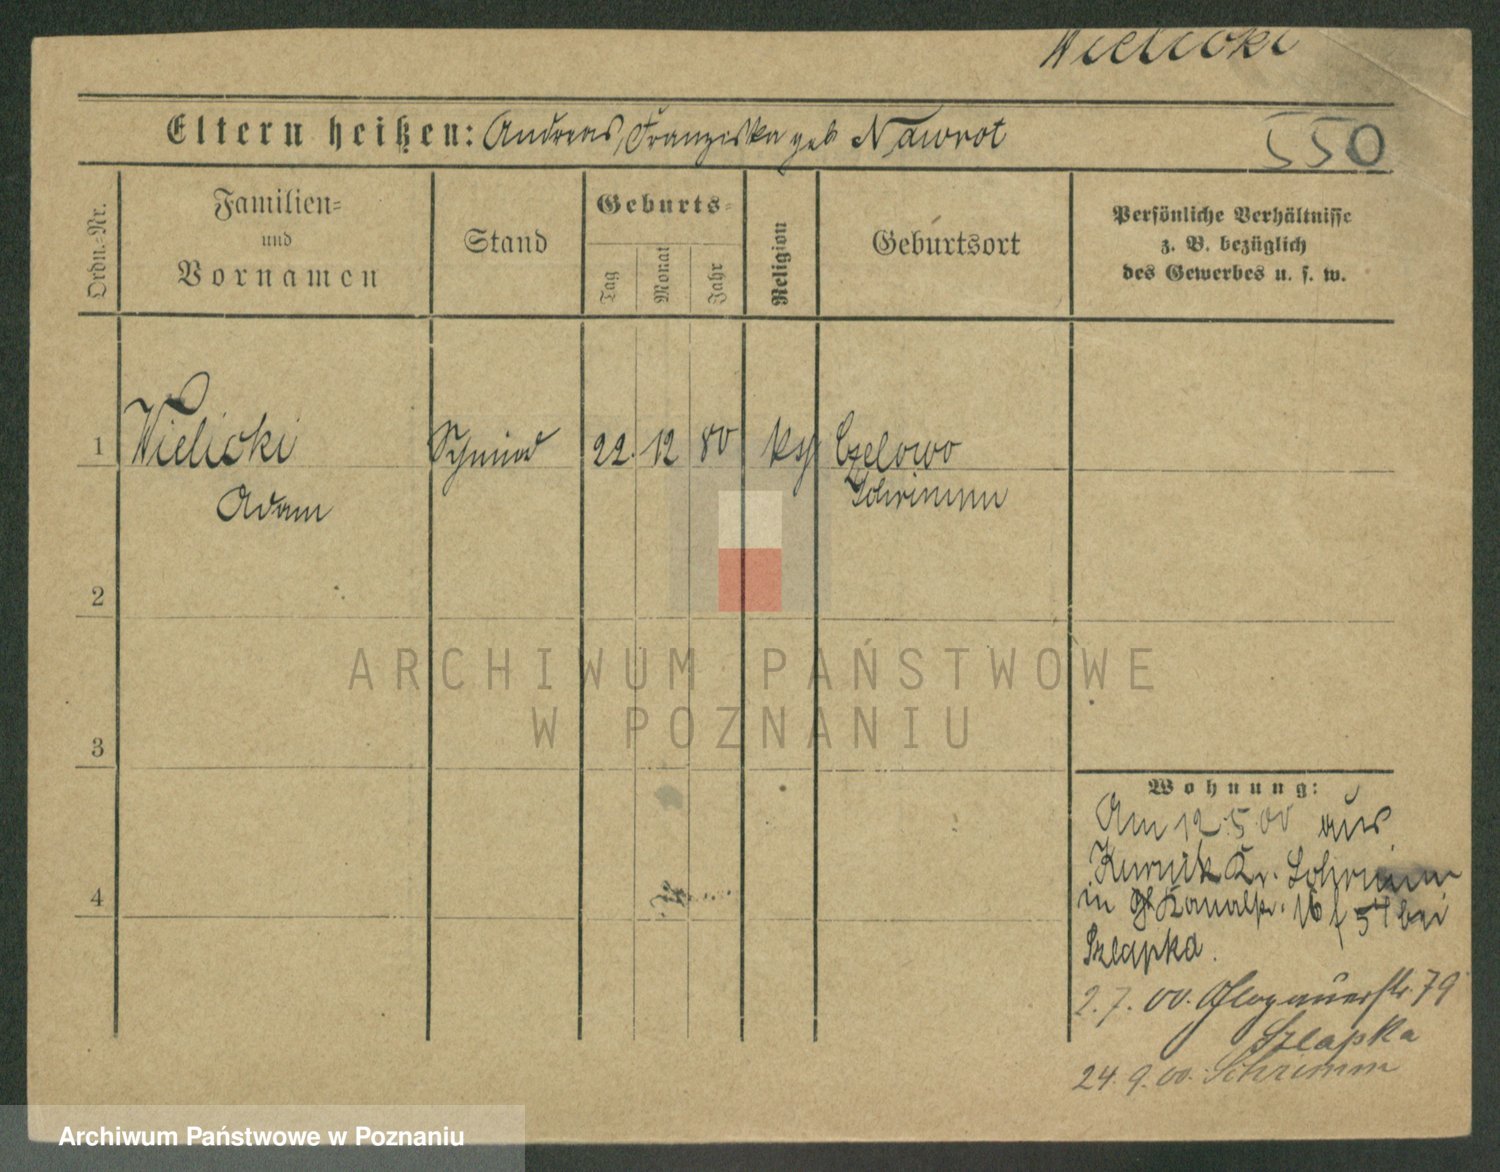 Wielicki
Eltern heißen: Andreas, Franziska geb Nawrot
550
Ordn.=Nr.
Familien=
und
Vornamen
Stand
Geburts=
Tag
Monat
Jahr
Religion
Geburtsort
Persönliche Verhältnisse
z. B. bezüglich
des Gewerbes u. s. w.
1
Wielicki
Schmied
22. 12 80
Adam
Schrimm
2
ARCHIWUM PAŃSTWOWE
W POZNANIU
3
4
Wohnung:
Am 12.5.00 aus
Kurnik Kr. Schrimm
in Kanalstr. 16 bei
Szlapka.
2.7.00. Glogauerstr. 79
Szlapka
24.9.00. Schrimm
Archiwum Państwowe w Poznaniu